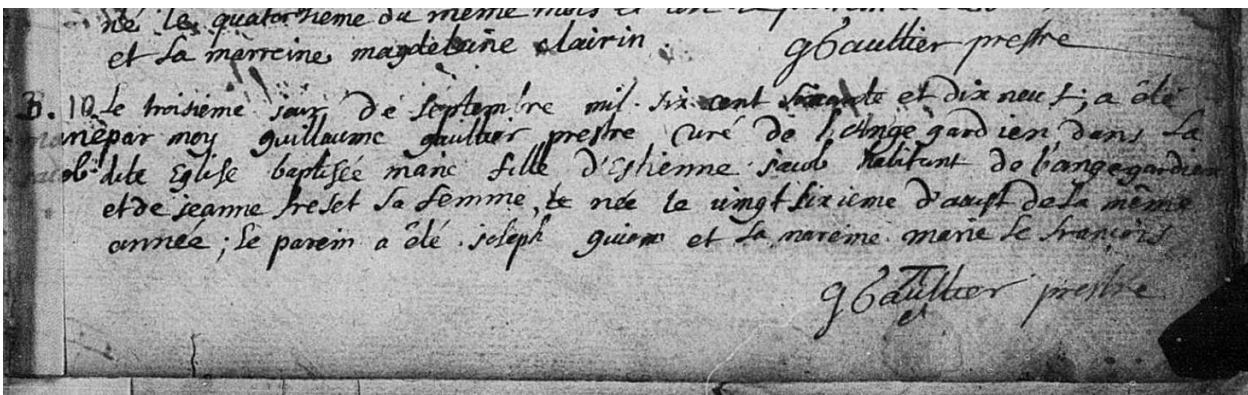 né le quatorsieme du même mois et
et la marreine magdelaine clairin
gGaultier prestre
B. 10 Le troisième jour de septembre mil six cent soixante et dix neuf; a êté
marie par moy guillaume gaultier prestre curé de l'Ange gardien dans la
jacob dite Eglise baptisée marie fille d'Estienne jacob habitant de l'ange gardien
et de jeanne freset sa femme, née le vingt sixieme d'aust de la même
année; le parein a êté joseph guion et la mareine marie le françois
gGaultier prestre